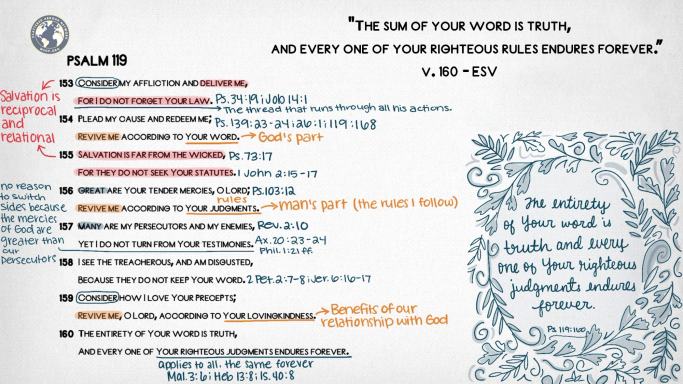 "THE SUM OF YOUR WORD IS TRUTH,
AND EVERY ONE OF YOUR RIGHTEOUS RULES ENDURES FOREVER."
V. 160 - ESV
PSALM 119
153 CONSIDER MY AFFLICTION AND DELIVER ME,
FOR I DO NOT FORGET YOUR LAW. Ps. 34:19; Job 14:1
The thread that runs through all his actions.
154 PLEAD MY CAUSE AND REDEEM ME; Ps. 139:23-24; 26:1; 119:168
REVIVE ME ACCORDING TO YOUR WORD. → God's part
155 SALVATION IS FAR FROM THE WICKED, Ps. 73:17
FOR THEY DO NOT SEEK YOUR STATUTES. 1 John 2:15-17
156 GREAT ARE YOUR TENDER MERCIES, O LORD; Ps. 103:12
rules
REVIVE ME ACCORDING TO YOUR JUDGMENTS. → man's part (the rules I follow)
157 MANY ARE MY PERSECUTORS AND MY ENEMIES, Rev. 2:10
YET I DO NOT TURN FROM YOUR TESTIMONIES. Ax. 20:23-24
Phil. 1:21 ff.
158 I SEE THE TREACHEROUS, AND AM DISGUSTED,
BECAUSE THEY DO NOT KEEP YOUR WORD. 2 Pet. 2:7-8; Jer. 6:16-17
159 CONSIDER HOW I LOVE YOUR PRECEPTS;
REVIVE ME, O LORD, ACCORDING TO YOUR LOVINGKINDNESS. → Benefits of our
relationship with God
160 THE ENTIRETY OF YOUR WORD IS TRUTH,
AND EVERY ONE OF YOUR RIGHTEOUS JUDGMENTS ENDURES FOREVER.
applies to all, the same forever
Mal. 3:6; Heb 13:8; Is. 40:8
Salvation is
reciprocal
and
relational
no reason
to switch
sides because
the mercies
of God are
greater than
our
persecutors
The entirety
of Your word is
truth and every
one of Your righteous
judgments endures
forever.
Ps 119:160